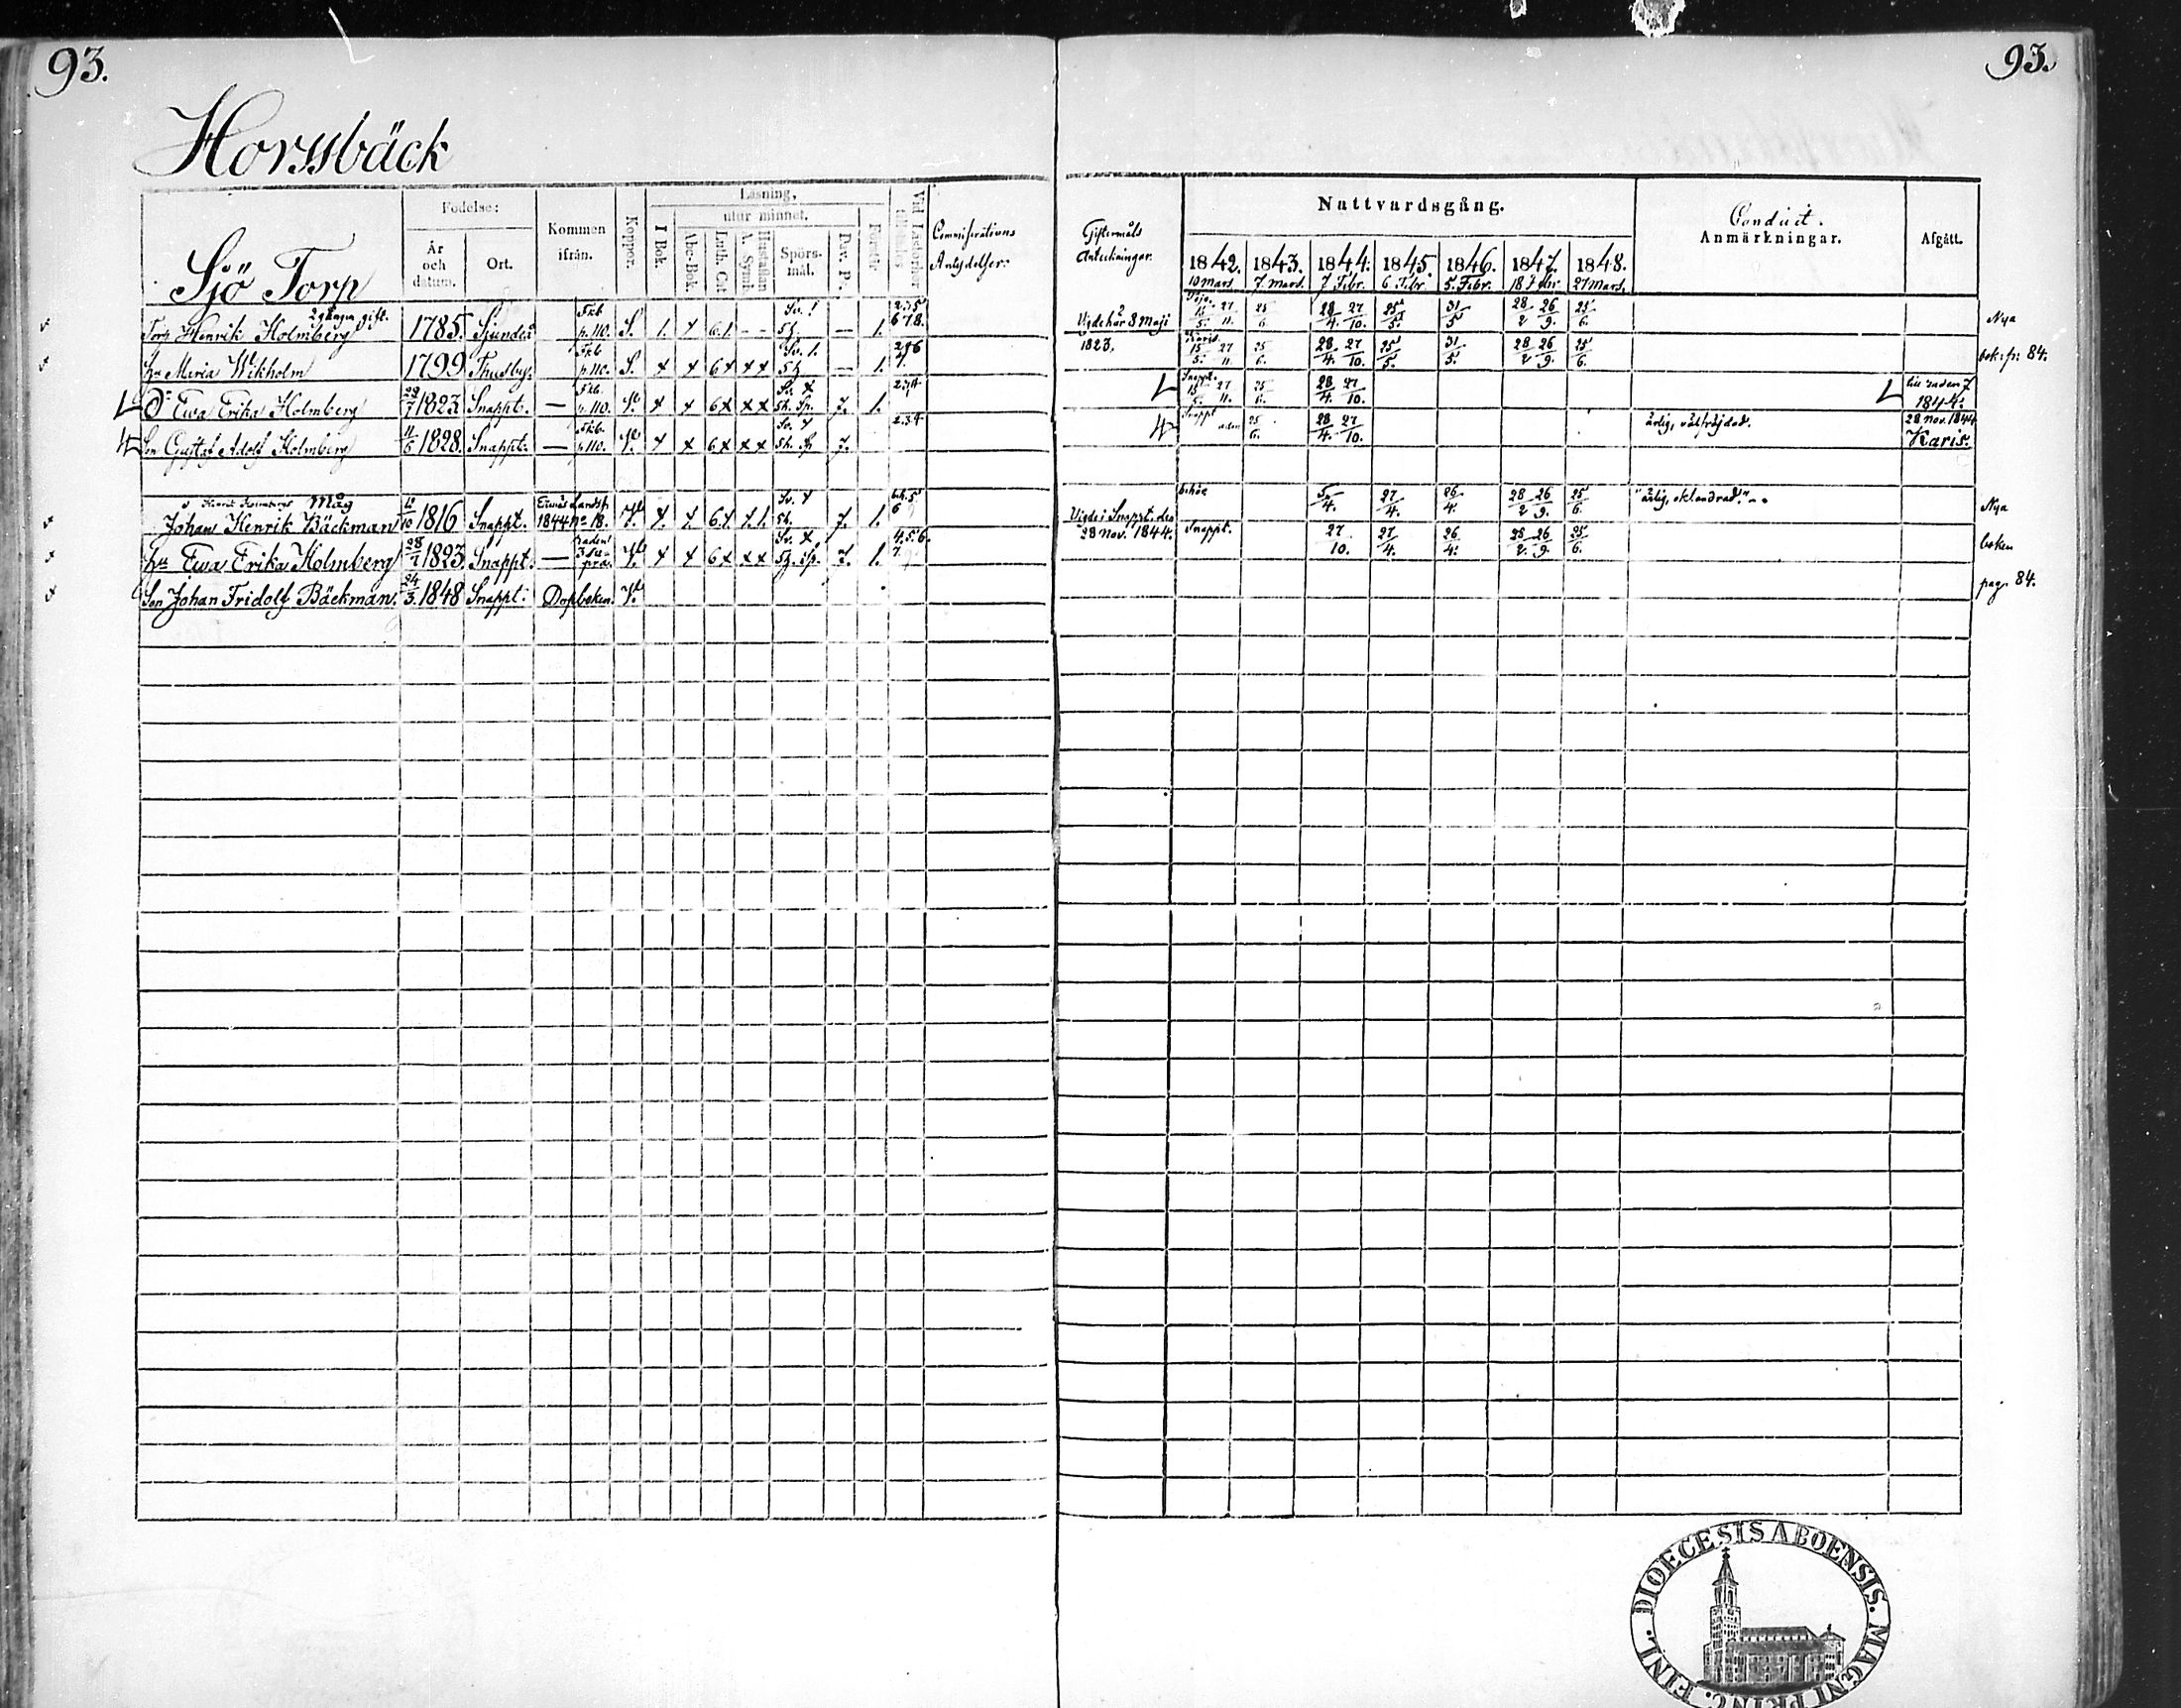 93.
93.
Horssbäck
Sjö Torp
Födelse:
År och datum.
Ort.
Kommen ifrån.
Koppor.
Läsning,
I Bok.
utur minnet.
Abc-Bok.
Luth. Cat
A. Symb.
Hustaflan
Spörs-mål.
Dav. Ps.
Förstår
Vid Läsförhör
Giftermåls Anteckningar.
Nattvardsgång.
1842. 1843. 1844. 1845. 1846. 1847. 1848.
10 Mars. 7 Mars. 7 Febr. 6 Febr. 5. Febr. 18 Febr. 27 Mars.
Conduit.
Anmärkningar.
Afgått.
2 gången gift.
Torp. Henrik Holmberg 1785. Sjundeå Fkb p. 110. S. 1. x 6.1. - - Sv. 1 5h. — 1. 2.3.5 6 7.8. Vigde här 8 Maji 1823. 15/5. 27/11. 25/6. 28/4. 27/10. 25/5. 31/5 28/2 26/9. 25/6. Nya
hu Maria Wikholm 1799 Thusby. Fkb p. 110. S. x x 6 x x x Sv. 1. 5h — 1. Karis 15/5. 27/11 25/6. 28/4. 27/10. 25/5. 31/5. 28/2 26/9. 25/6. bok: p: 84.
Dr Ewa Erika Holmberg 22/7 1823 Snappt. — Fkb. p. 110. x x 6 x x x Sv. x 5h. Sp. 7. 1. 2.3.4 Snappt. 15/5. 27/11. 25/6. 28/4. 27/10. 1844.
Son Gustaf Adolf Holmberg 11/6 1828. Snappt. — Fkb. p. 110. x x 6 x x x Sv. x 5h. Sp 7. 2.3.4 Snappt 25/6. 28/4. 27/10. ärlig, välfrejdad. 28 Nov. 1844 Karis.
Måg
Johan Henrik Bäckman 12/10 1816 Snappt. 1844 No 18. x. x. 6 x x. 1. Sv. x 5h. 7. 1. 5/4. 27/4. 26/4. 28/2 26/9. 25/6. "ärlig, oklandrad." Nya
hu Ewa Erika Holmberg 28/7 1823. Snappt. — x x 6 x x x Sv. x 5h. Sp. 7. 1. 4.5.6. 7. Vigde i Snappt. den 28 Nov. 1844. Snappt. 27/10. 27/4. 26/4. 28/2. 26/9. 25/6. boken
Son Johan Fridolf Bäckman. 24/3. 1848 Snappt: Dopboken. pag. 84.
DIOECESIS ABOENSIS. MAGNI PRINC. FINL.